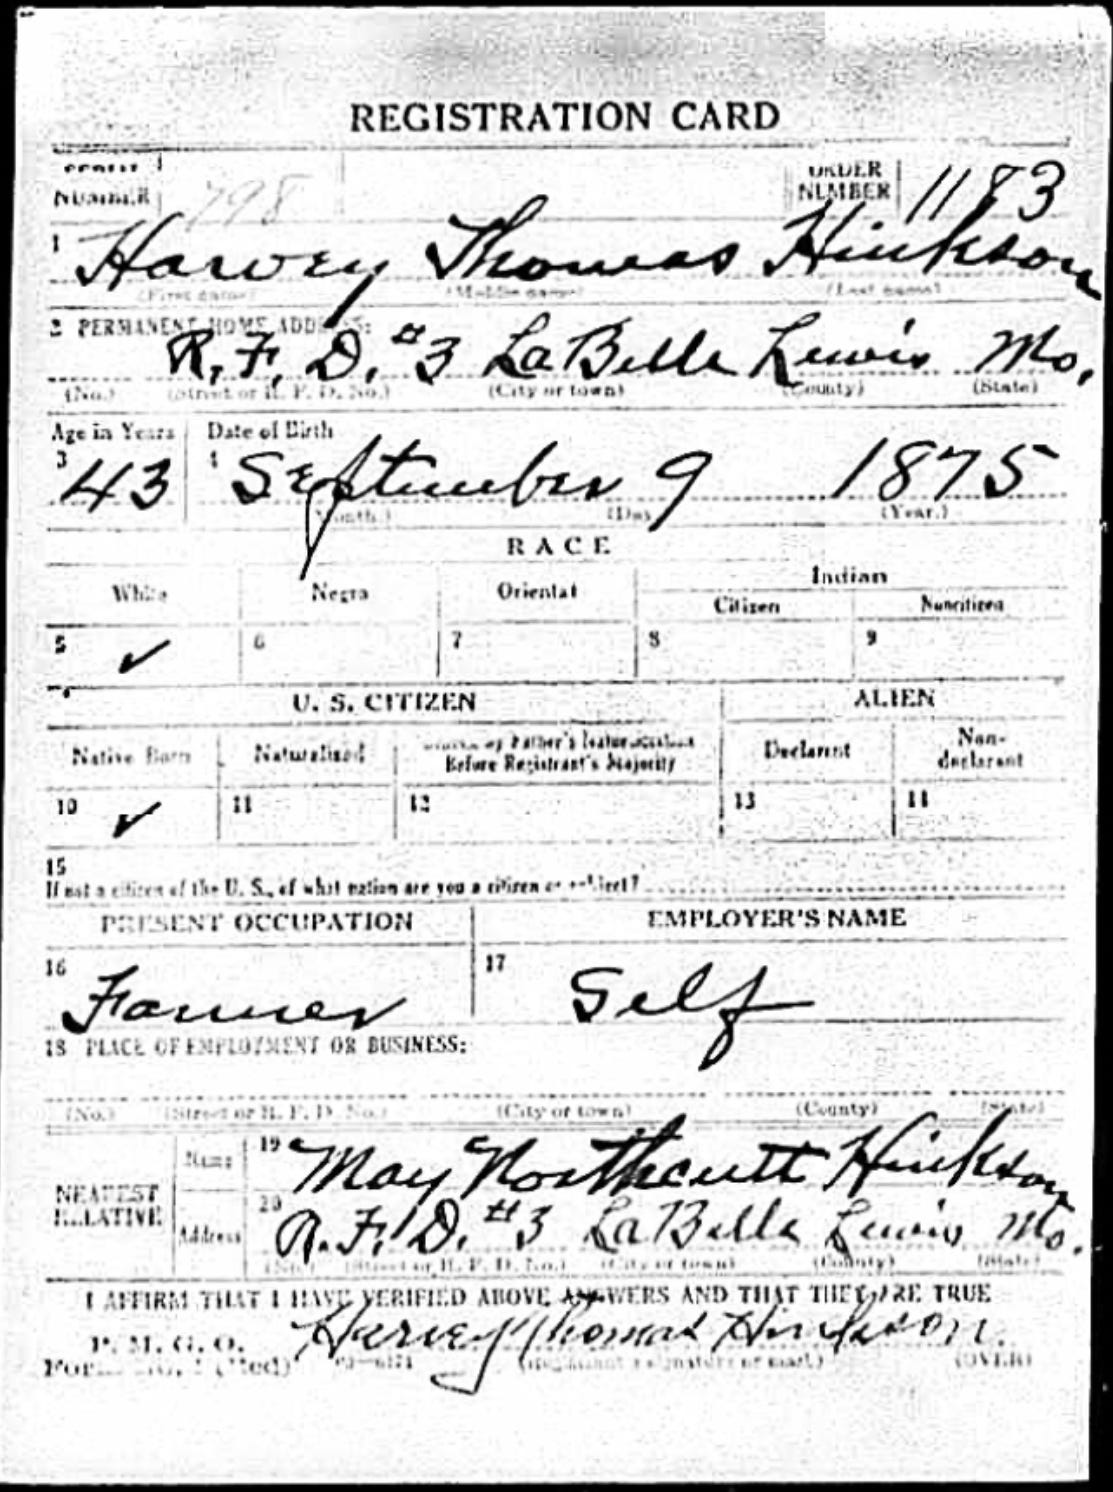 REGISTRATION CARD
SERIAL NUMBER 798 ORDER NUMBER 1183
1 Harvey Thomas Hinkson
(First name) (Middle name) (Last name)
2 PERMANENT HOME ADDRESS:
R. F. D. #3 LaBelle Lewis Mo.
(No.) (Street or R. F. D. No.) (City or town) (County) (State)
Age in Years Date of Birth
3 43 4 September 9 1875
(Month.) (Day (Year.)
RACE
White Negro Oriental Indian
Citizen Noncitizen
5 ✓ 6 7 8 9
U. S. CITIZEN ALIEN
Native Born Naturalized by Father's Naturalization Before Registrant's Majority Declarant Non-declarant
10 ✓ 11 12 13 14
15
If not a citizen of the U. S., of what nation are you a citizen or subject?
PRESENT OCCUPATION EMPLOYER'S NAME
16 Farmer 17 Self
18 PLACE OF EMPLOYMENT OR BUSINESS:
(No.) (Street or R. F. D. No.) (City or town) (County) (State)
NEAREST RELATIVE Name 19 May Northcutt Hinkson
Address 20 R. F. D. #3 LaBelle Lewis Mo.
(No.) (Street or R. F. D. No.) (City or town) (County) (State)
I AFFIRM THAT I HAVE VERIFIED ABOVE ANSWERS AND THAT THEY ARE TRUE
P. M. G. O. Harvey Thomas Hinkson.
(Red) (Registrant's signature or mark.) (OVER)